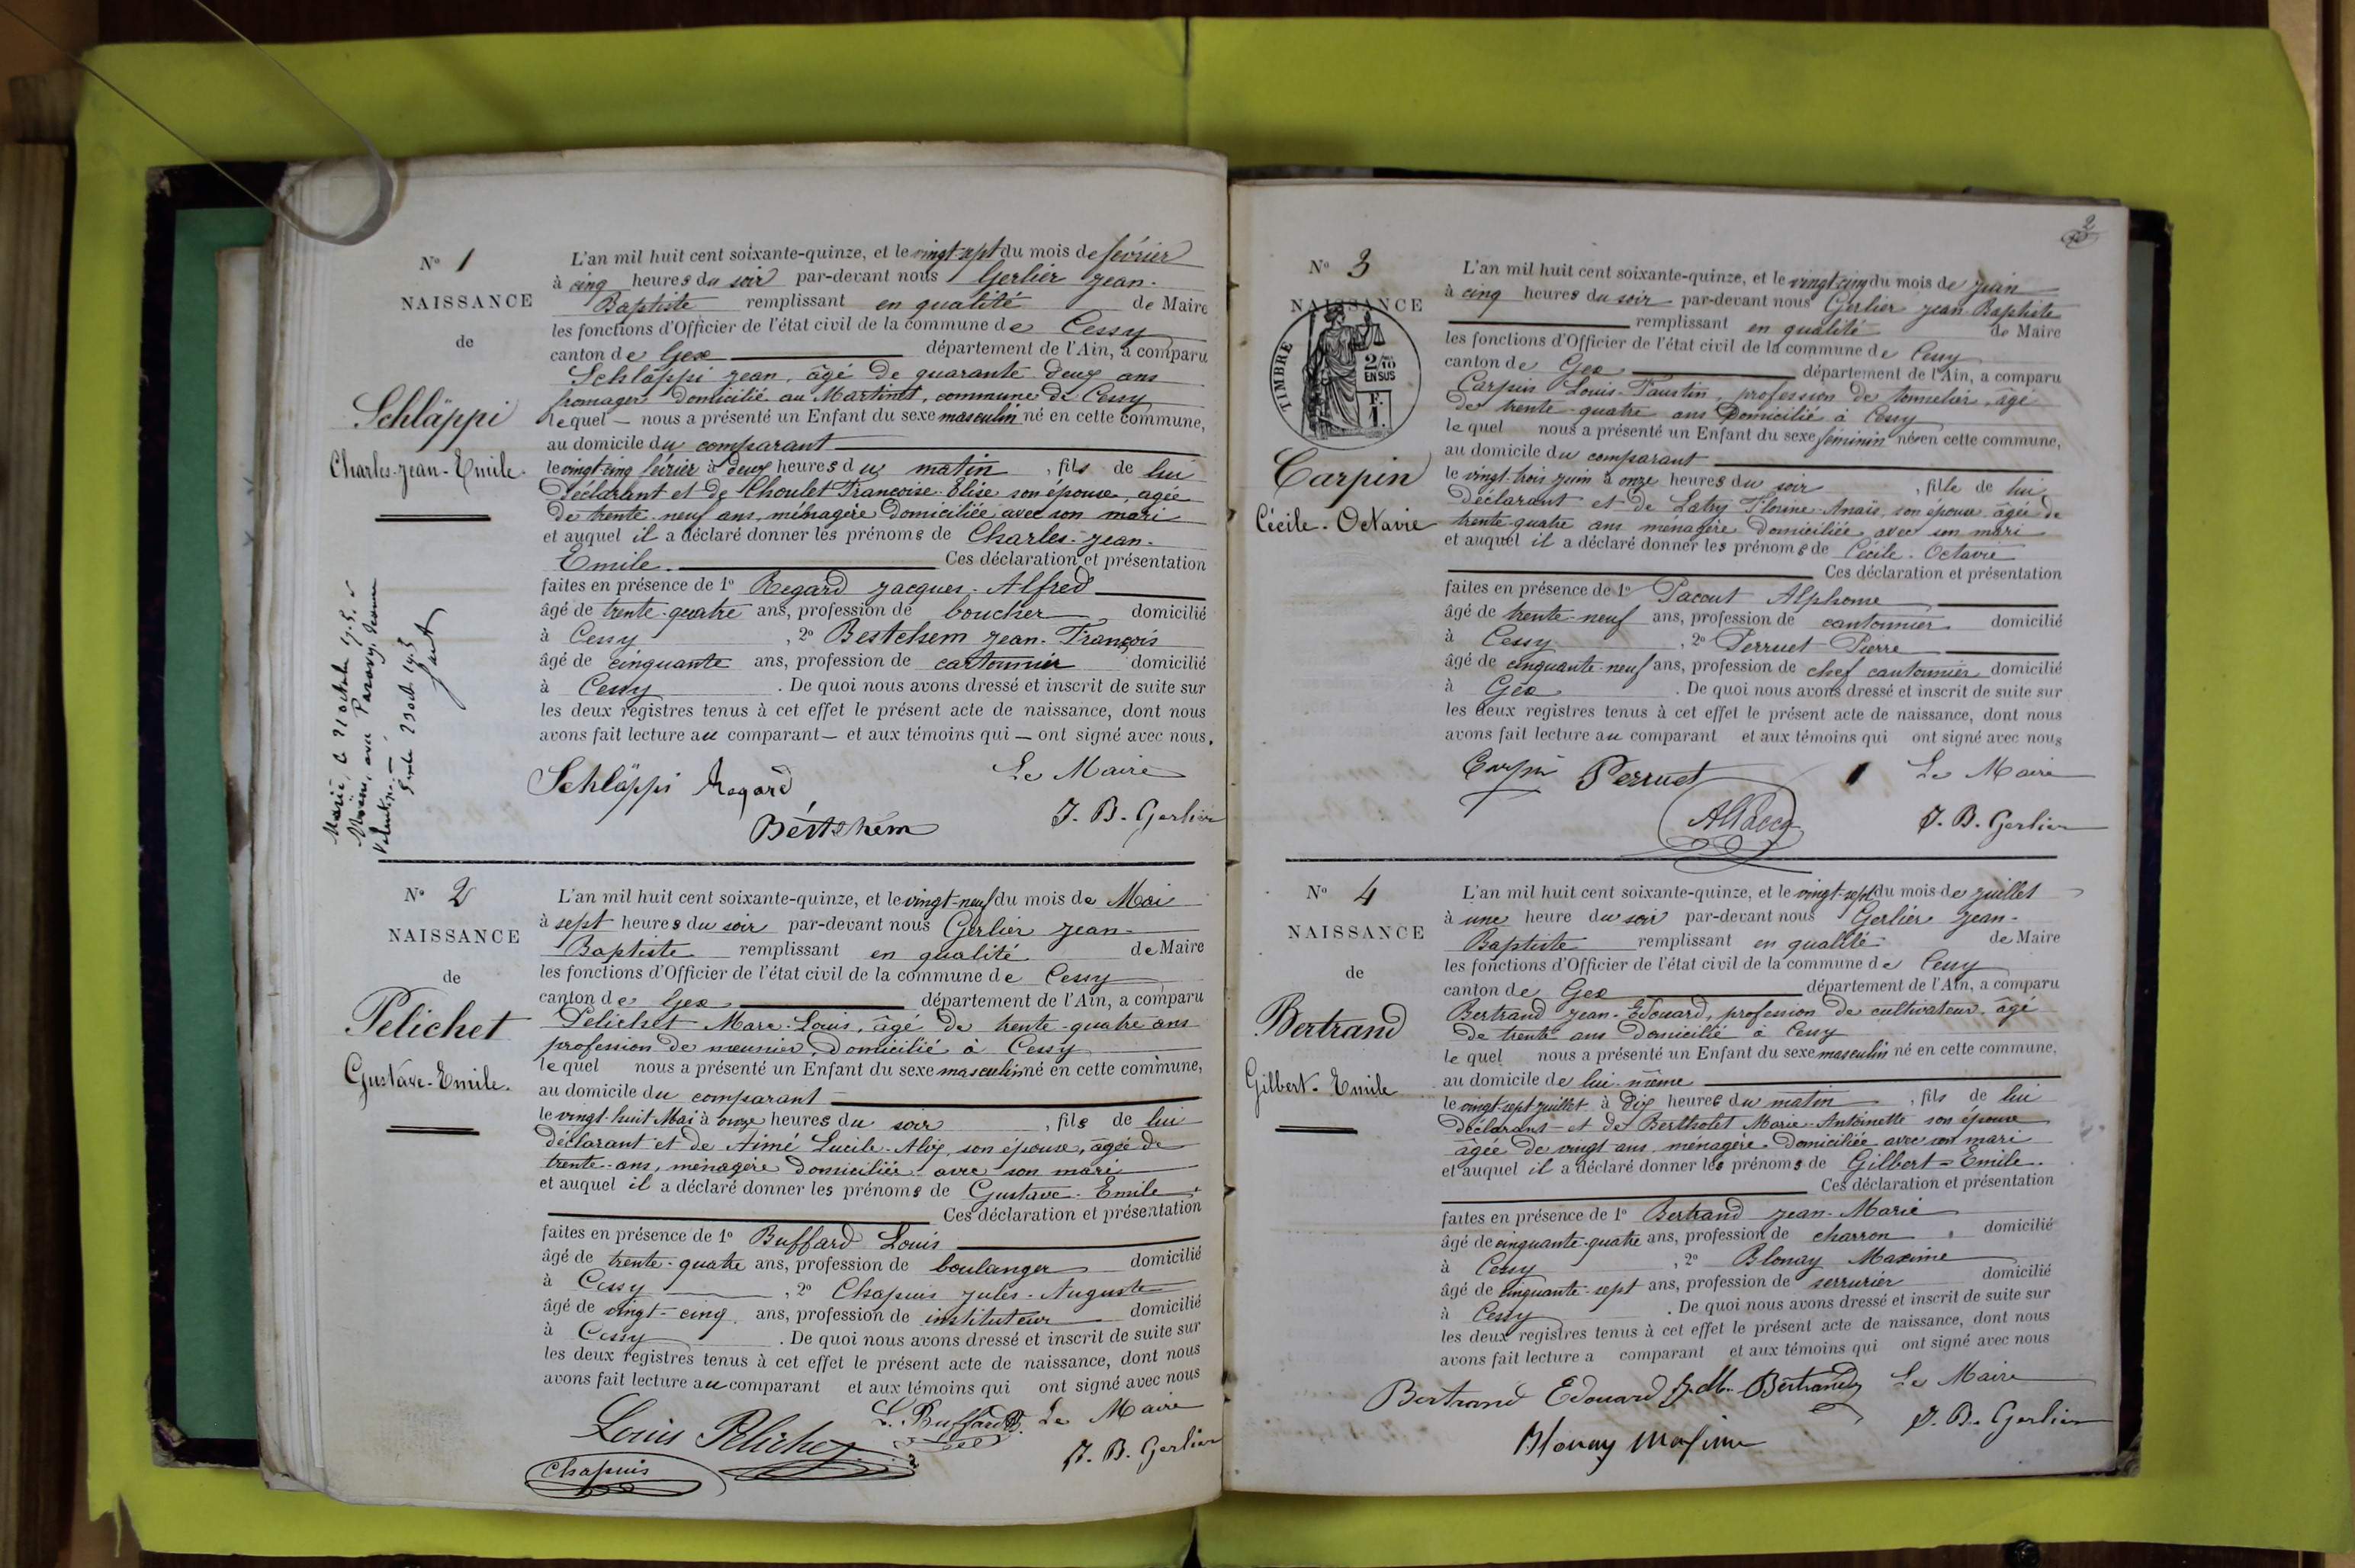 N° 1
NAISSANCE
de
Schläppi
Charles-Jean-Emile.
L'an mil huit cent soixante-quinze, et le vingt-sept du mois de février
à cinq heures du soir par-devant nous Gerlier Jean-
Baptiste remplissant en qualité de Maire
les fonctions d'Officier de l'état civil de la commune de Cessy
canton de Gex département de l'Ain, a comparu
Schläppi Jean, âgé de quarante deux ans
fromager domicilié au Martinet, commune de Cessy
lequel nous a présenté un Enfant du sexe masculin né en cette commune,
au domicile du comparant
le vingt-cinq février à deux heures du matin, fils de lui
déclarant et de Choulet Françoise-Elise son épouse, agée
de trente-neuf ans, ménagère domiciliée avec son mari
et auquel il a déclaré donner les prénoms de Charles-Jean-
Emile. Ces déclaration et présentation
faites en présence de 1° Regard Jacques-Alfred
âgé de trente-quatre ans, profession de boucher domicilié
à Cessy, 2° Bestchem Jean-François
âgé de cinquante ans, profession de cartonnier domicilié
à Cessy. De quoi nous avons dressé et inscrit de suite sur
les deux registres tenus à cet effet le présent acte de naissance, dont nous
avons fait lecture au comparant et aux témoins qui ont signé avec nous.
Schläppi Regard Le Maire
Bértshem J. B. Gerlier
Marié le 21 octobre
avec
N° 2
NAISSANCE
de
Pelichet
Gustave-Emile.
L'an mil huit cent soixante-quinze, et le vingt-neuf du mois de Mai
à sept heures du soir par-devant nous Gerlier Jean-
Baptiste remplissant en qualité de Maire
les fonctions d'Officier de l'état civil de la commune de Cessy
canton de Gex département de l'Ain, a comparu
Pelichet Marc-Louis, âgé de trente-quatre ans
profession de meunier, domicilié à Cessy
lequel nous a présenté un Enfant du sexe masculin né en cette commune,
au domicile du comparant
le vingt-huit Mai à onze heures du soir, fils de lui
déclarant et de Aimé Lucile-Alix, son épouse, agée de
trente-ans, ménagère domiciliée avec son mari
et auquel il a déclaré donner les prénoms de Gustave-Emile.
Ces déclaration et présentation
faites en présence de 1° Buffard Louis
âgé de trente-quatre ans, profession de boulanger domicilié
à Cessy, 2° Chapuis Jules-Auguste
âgé de vingt-cinq ans, profession de instituteur domicilié
à Cessy. De quoi nous avons dressé et inscrit de suite sur
les deux registres tenus à cet effet le présent acte de naissance, dont nous
avons fait lecture au comparant et aux témoins qui ont signé avec nous
Louis Pelichet L. Buffard Le Maire
Chapuis J. B. Gerlier
2
N° 3
NAISSANCE
TIMBRE
2/10
EN SUS
F.
1.
Carpin
Cécile-Octavie
L'an mil huit cent soixante-quinze, et le vingt-cinq du mois de Juin
à cinq heures du soir par-devant nous Gerlier Jean-Baptiste
remplissant en qualité de Maire
les fonctions d'Officier de l'état civil de la commune de Cessy
canton de Gex département de l'Ain, a comparu
Carpin Louis-Faustin, profession de tonnelier, âgé
de trente-quatre ans domicilié à Cessy
lequel nous a présenté un Enfant du sexe féminin née en cette commune,
au domicile du comparant
le vingt-trois Juin à onze heures du soir, fille de lui
déclarant et de Latry Florine-Anaïs, son épouse âgée de
trente-quatre ans ménagère domiciliée avec son mari
et auquel il a déclaré donner les prénoms de Cécile-Octavie
Ces déclaration et présentation
faites en présence de 1° Pacout Alphonse
âgé de trente-neuf ans, profession de cantonnier domicilié
à Cessy, 2° Perruet Pierre
âgé de cinquante-neuf ans, profession de chef cantonnier domicilié
à Gex. De quoi nous avons dressé et inscrit de suite sur
les deux registres tenus à cet effet le présent acte de naissance, dont nous
avons fait lecture au comparant et aux témoins qui ont signé avec nous
Carpin Perruet Le Maire
J. B. Gerlier
N° 4
NAISSANCE
de
Bertrand
Gilbert-Emile
L'an mil huit cent soixante-quinze, et le vingt-sept du mois de Juillet
à une heure du soir par-devant nous Gerlier Jean-
Baptiste remplissant en qualité de Maire
les fonctions d'Officier de l'état civil de la commune de Cessy
canton de Gex département de l'Ain, a comparu
Bertrand Jean-Edouard, profession de cultivateur, âgé
de trente ans domicilié à Cessy
lequel nous a présenté un Enfant du sexe masculin né en cette commune,
au domicile de lui-même
le vingt-sept Juillet à dix heures du matin, fils de lui
déclarant et de Bertholet Marie-Antoinette son épouse
âgée de vingt ans, ménagère domiciliée avec son mari
et auquel il a déclaré donner les prénoms de Gilbert=Emile.
Ces déclaration et présentation
faites en présence de 1° Bertrand Jean-Marie
âgé de cinquante-quatre ans, profession de charron, domicilié
à Cessy, 2° Blonay Maxime
âgé de cinquante-sept ans, profession de serrurier domicilié
à Cessy. De quoi nous avons dressé et inscrit de suite sur
les deux registres tenus à cet effet le présent acte de naissance, dont nous
avons fait lecture a comparant et aux témoins qui ont signé avec nous
Bertrand Edouard J. M. Bertrand Le Maire
Blonay Maxime J. B. Gerlier